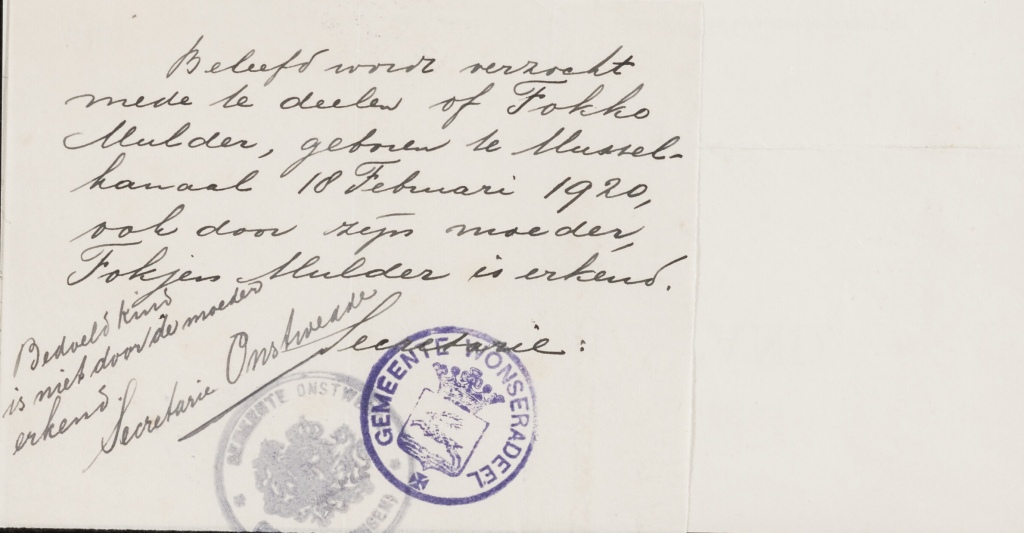 Beleefd wordt verzocht
mede te deelen of Fokko
Mulder, geboren te Mussel-
kanaal 18 Februari 1920,
ook door zijn moeder,
Fokjen Mulder is erkend.
Secretarie:
Bedoeld kind
is niet door de moeder
erkend.
Secretarie Onstwedde
GEMEENTE WONSERADEEL
GEMEENTE ONSTW